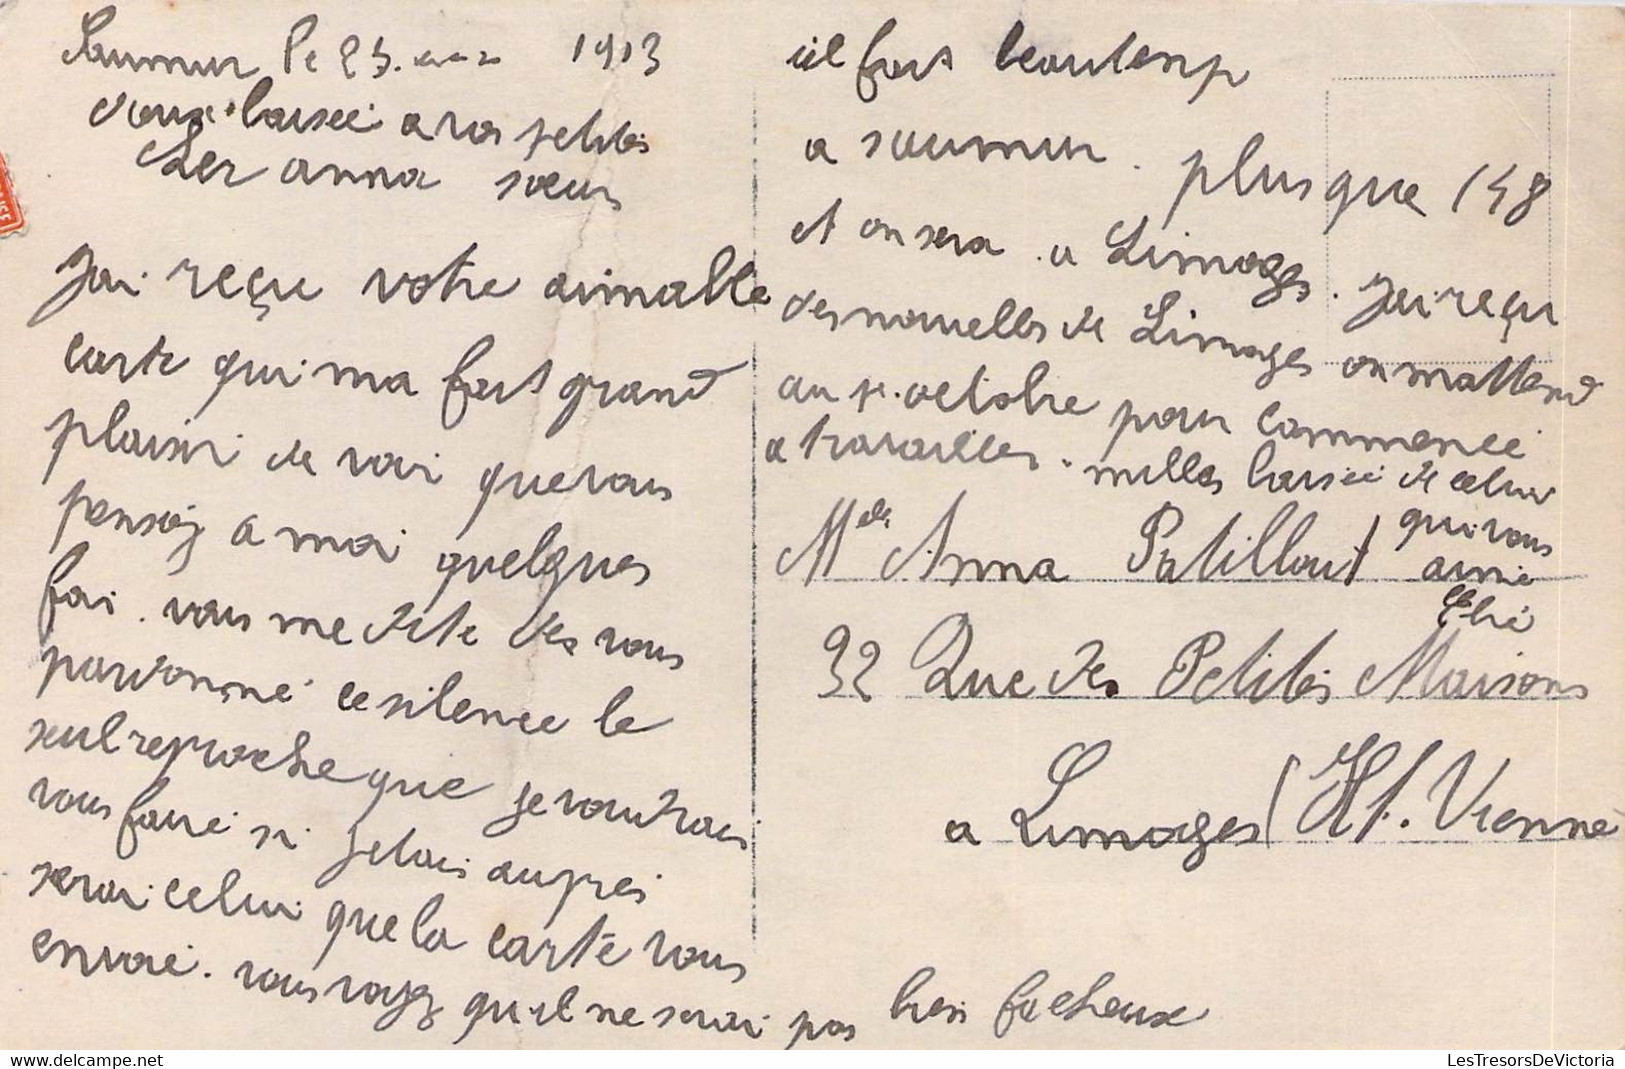 Saumur le 25. 1913
Doux baiseé a vos petites
soeurs
Cher anna
Jai reçu votre aimable
carte qui ma fait grand
plaisir de voir que vous
pensez a moi quelques
foi. vous me dite des vous
pardonné ce silence le
seul reproche que je voudrais
vous faire si jetais aupres
serai celui que la carte vous
envoie. vous voyez qu'il ne serai pas bien facheux
il fait beautemp
a Saumur. plus que 148
et on sera a Limoges. Jai reçu
des nouvelles de Limoges on mattend
au 1r. octobre pour commencé
a travailler. milles baiseé de celui
qui vous
aime
Mde Anna Patillout
32 Rue des Petites Maisons
a Limoges (Hte. Vienne
LesTresorsDeVictoria